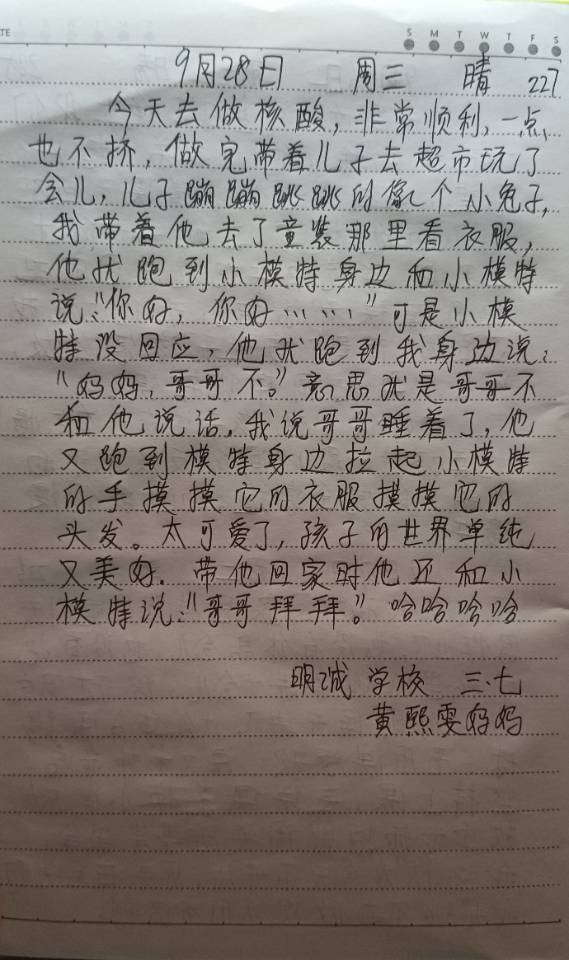 TE
S M T W T F S
9月28日 周三 晴 227
今天去做核酸,非常顺利,一点
也不挤,做完带着儿子去超市玩了
会儿,儿子蹦蹦跳跳的像个小兔子,
我带着他去了童装那里看衣服,
他就跑到小模特身边和小模特
说:“你好,你好……”可是小模
特没回应,他就跑到我身边说:
“妈妈,哥哥不。”意思就是哥哥不
和他说话,我说哥哥睡着了,他
又跑到模特身边拉起小模特
的手摸摸它的衣服摸摸它的
头发。太可爱了,孩子的世界单纯
又美好.带他回家时他还和小
模特说:“哥哥拜拜”。哈哈哈哈
明诚学校 三.七
黄熙雯妈妈